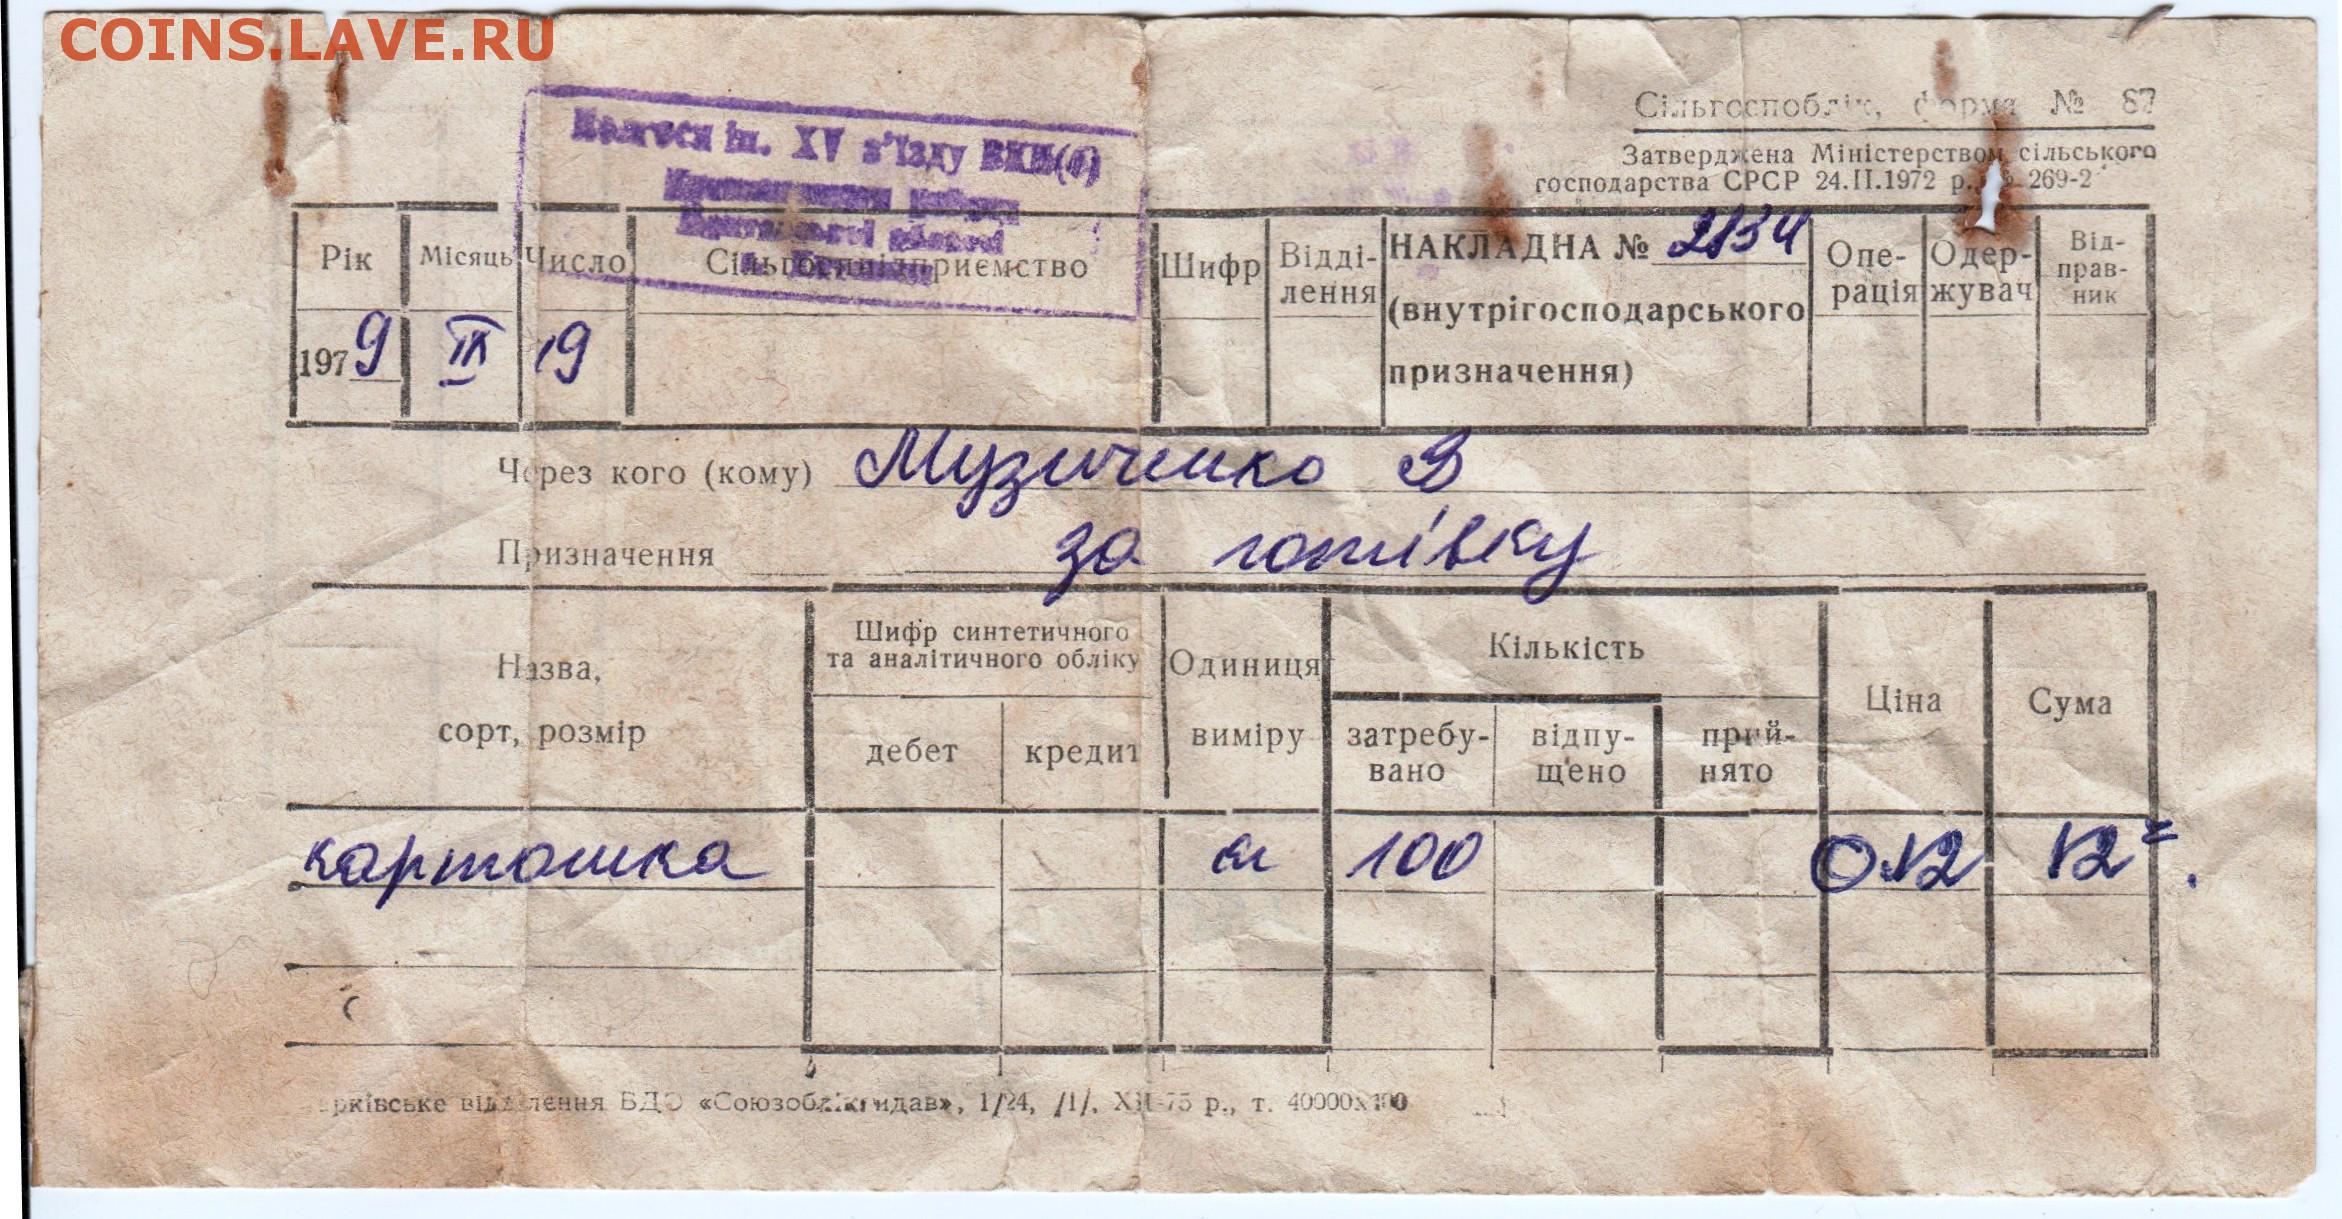 COINS.LAVE.RU
Сільгоспоблік, форма № 87
Затверджена Міністерством сільського
господарства СРСР 24.II.1972 р. № 269-2
Колгосп ім. XV з'їзду ВКП(б)
області
Рік Місяць Число Сільгосппідприємство Шифр Відді-лення НАКЛАДНА № 2134 (внутрігосподарського призначення) Опе-рація Одер-жувач Від-прав-ник
1979 IX 19
Через кого (кому) Музиченко В
Призначення за готівку
Назва, сорт, розмір Шифр синтетичного та аналітичного обліку Одиниця виміру Кількість Ціна Сума
дебет кредит затребу-вано відпу-щено прий-нято
картошка кг 100 0 12 12=
арківське відділення БДО «Союзобліквидав», 1/24, /1/. XII-75 р., т. 40000х100